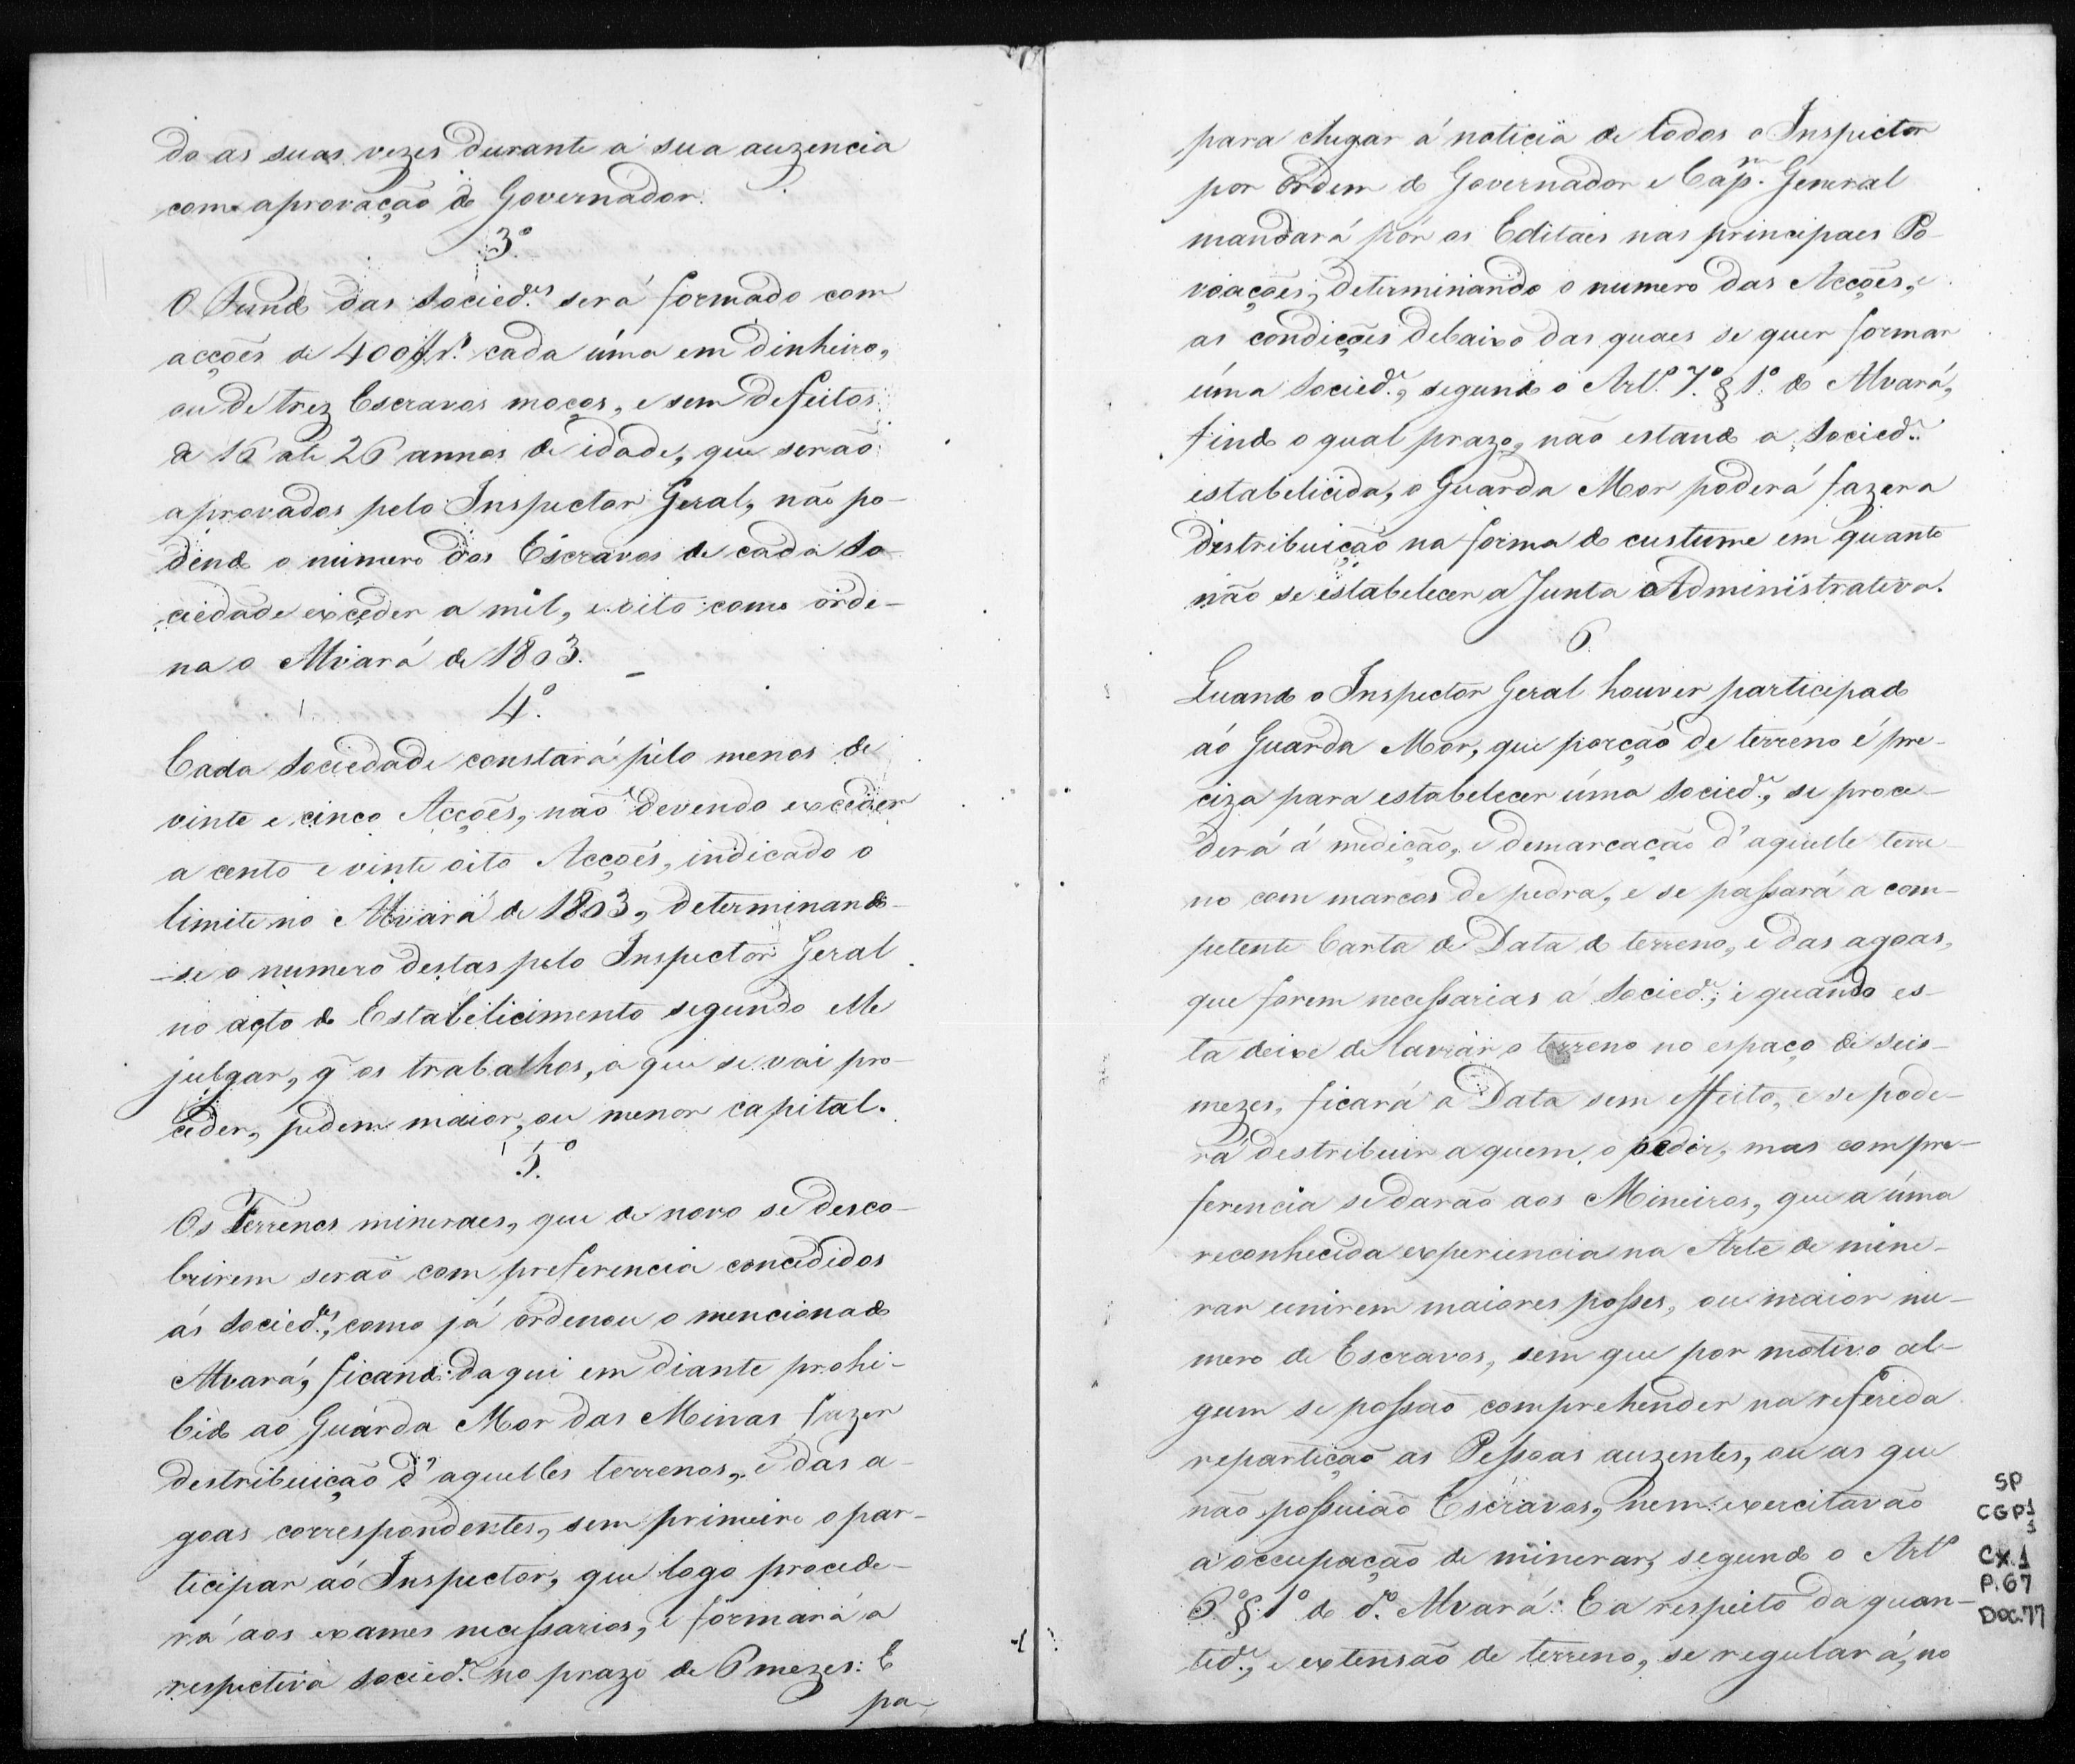 do as suas vezes durante a sua auzencia
com aprovação do Governador.
3.º
O Fundo das Socied.es será formado com
acções de 400$ r.s cada úma em dinheiro,
ou de trez Escravos moços, e sem defeitos
de 16 até 26 annos de idade, que serão
aprovados pelo Inspector Geral, não po-
dendo o numero dos Escravos de cada So
ciedade exceder a mil, e oito como orde-
na o Alvará de 1803. –
4.º
Cada Sociedade constará pelo menos de
vinte e cinco Acções, não devendo exceder
a cento e vinte oito Acções, indicado o
limite no Alvará de 1803, determinando-
-se o numero destas pelo Inspector Geral
no acto do Estabelicimento segundo elle
julgar, q̃ os trabalhos, a que se vai pro-
ceder, pedem maior, ou menor capital.
5.º
Os Terrenos mineraes, que de novo se desco-
brirem serão com preferencia concedidos
ás Socied.es, como já ordenou o mencionado
Alvará, ficando daqui em diante prohi-
bido ao Guarda Mor das Minas fazer
destribuição d'aquelles terrenos, e das a-
goas correspondentes, sem primeiro o par-
ticipar aó Inspector, que logo procede-
rá aos exames necessarios, e formará a
respectiva Socied.e no prazo de 6 mezes: E
pa-
para chegar á noticia de todos o Inspector
por ordem do Governador e Cap.m General
mandará pôr os Editaes nas principaes Po-
voações, determinando o numero das Acções, e
as condições debaixo das quaes se quer formar
úma Socied.e, segundo o Art.º 7.º § 1.º do Alvará,
findo o qual prazo, não estando a Socied.e
estabelicida, o Guarda Mor poderá fazer a
distribuição na forma do custume em quanto
não se estabelecer a Junta Administrativa.
6
Quando o Inspector Geral houver participado
aó Guarda Mor, que porção de terreno é pre-
ciza para estabelecer úma Socied.e, se proce-
derá á medição, e demarcação d'aquelle terre-
no com marcos de pedra, e se passará a com-
petente Carta de Data do terreno, e das agoas,
que forem necessarias á Socied.e; e quando es-
ta deixe de lavrar o terreno no espaço de seis
mezes, ficará a Data sem effeito, e se pode-
rá destribuir a quem o pedir, mas com pre-
ferencia se darão aos Mineiros, que a úma
reconhecida experiencia na Arte de mine-
rar unirem maiores posses, ou maior nu-
mero de Escravos, sem que por motivo al-
gum se possão comprehender na referida
repartição as Pessoas auzentes, ou as que
não possuião Escravos, nem exercitavão
a occupação de minerar, segundo o Art.º
6.º § 1.º do d.º Alvará: E a respeito da quan-
tid.e, e extensão de terreno, se regulará, no
SP
CGP1
3
Cx.1
P.67
Doc.77